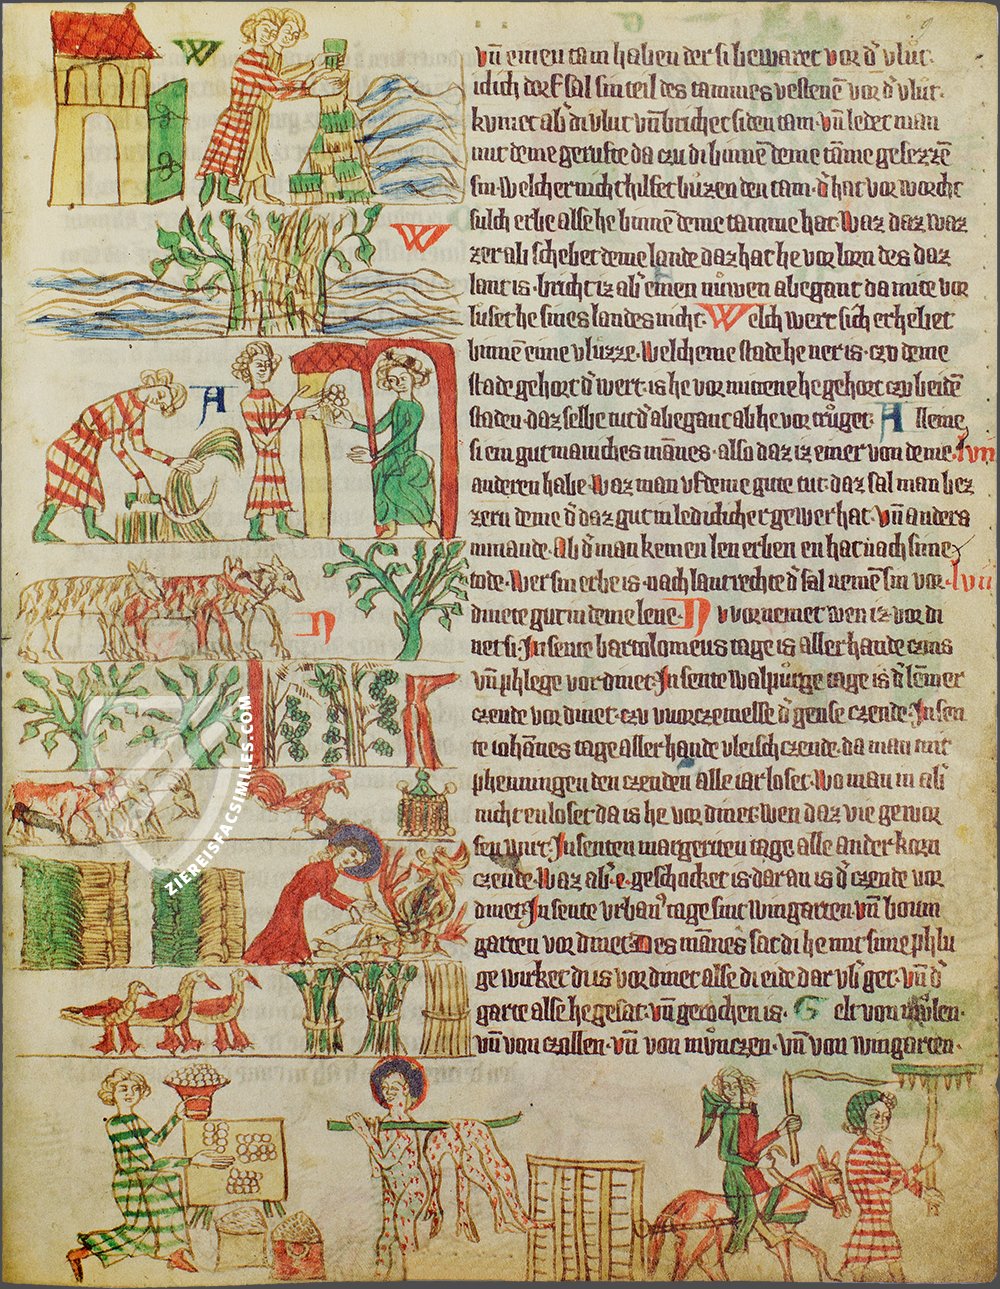 vñ einen tam haben der si bewaret vor d' vlut·
idich dorf sal sin teil des tammes vestenē vor d' vlut·
kumet ab' di vlut vñ brichet si den tam· vñ ledet man
mit deme gerufte da czu di binnē deme tāme gesezzē
sin· welcher nicht hilfet buzen den tam· d' hat vorworcht
sulch erbe alse he binnē deme tamme hat· Waz daz waz
zer ab schebet deme lande daz hat he vorlorn des daz
lant is· bricht iz ab' einen nuwen abegant da mite vor
luset he sines landes nicht· Welch wert sich erhebet
binnē eime vluzze· Welcheme stade he ner is· czu deme
stade gehort d' wert· is he vormittene he gehort czu beidē
staden· daz selbe tut d' abegant ab he vortruget· Alleme
si ein gut manches mānes· also daz iz einer von deme
anderen habe· Waz man vf deme gute tut· daz sal man bez
zern deme d' daz gut in ledichlicher gewer hat· vñ anders
nimande· Ab d' man keinen len erben en hat nach sime
tode· Wer sin erbe is· nach lantrechte d' sal nemē sin vor
dinete gut in deme lene· Nu vornemet wen iz vordi
net si· In sente bartolomeus tage is aller hande czins
vñ phlege vordinet· In sente walpurge tage is d' lēmer
czende vordinet· czu wurczemesse d' gense czende· In sen
te iohānes tage aller hande vleisch czende· da man mit
phenningen den czenden alle iar loset· Wo man in ab'
nicht enloset da is he vordinet wen daz vie gewor
fen wirt· In senten margreten tage alle ander korn
czende· Waz ab' e· geschocket is· daran is d' czende vor
dinet· In sente vrban' tage sint wingarten· vñ boum
garten vordinet· Des mānes sat di he mit sime phlu
ge wirket di is vordinet alse di eide dar vb' get· vñ d'
garte alse he gesat· vñ gerechen is· Gelt von mulen·
vñ von czollen· vñ von munczen· vñ von wingarten·
ZIEREISFACSIMILES.COM